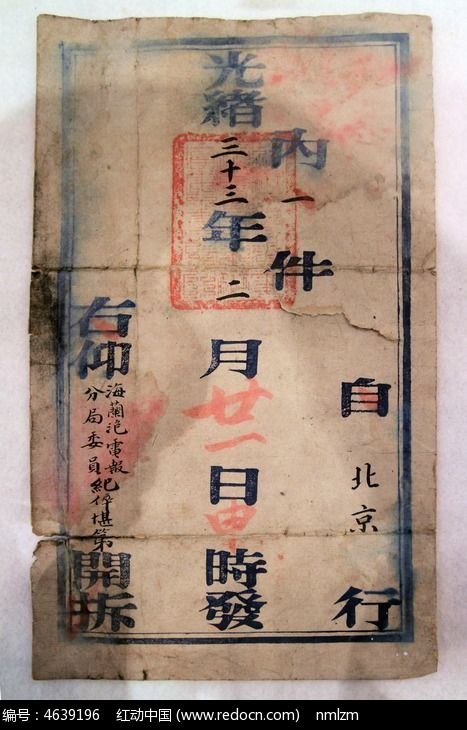 自北京行
内一件
光緒三十三年二月廿一日申時發
右仰
海蘭泡電報
分局委員紀堪第
開拆
编号：4639196 红动中国 (www.redocn.com) nmlzm